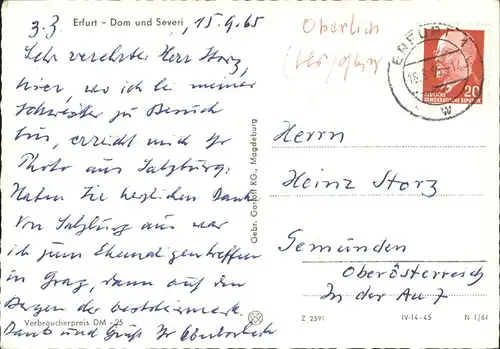 Erfurt – Dom und Severi
z.Z. , 15.9.65
Sehr verehrter Herr Storz,
hier, wo ich bei meiner
Schwester zu Besuch
bin, erreicht mich Ihr
Photo aus Salzburg.
Haben Sie herzlichen Dank.
Von Salzburg aus war
ich zum Ehemaligentreffen
in Graz, dann auf den
Bergen der
Dank und Gruß Ihr
Verbraucherpreis DM -,25
Gebr. Garloff KG., Magdeburg
Oberlich
ERFURT 1
DEUTSCHE
DEMOKRATISCHE REPUBLIK
20
w
Herrn
Heinz Storz
Gemünden
Oberösterreich
In der Au 7
Z 2391
IV-14-45
N 1/61